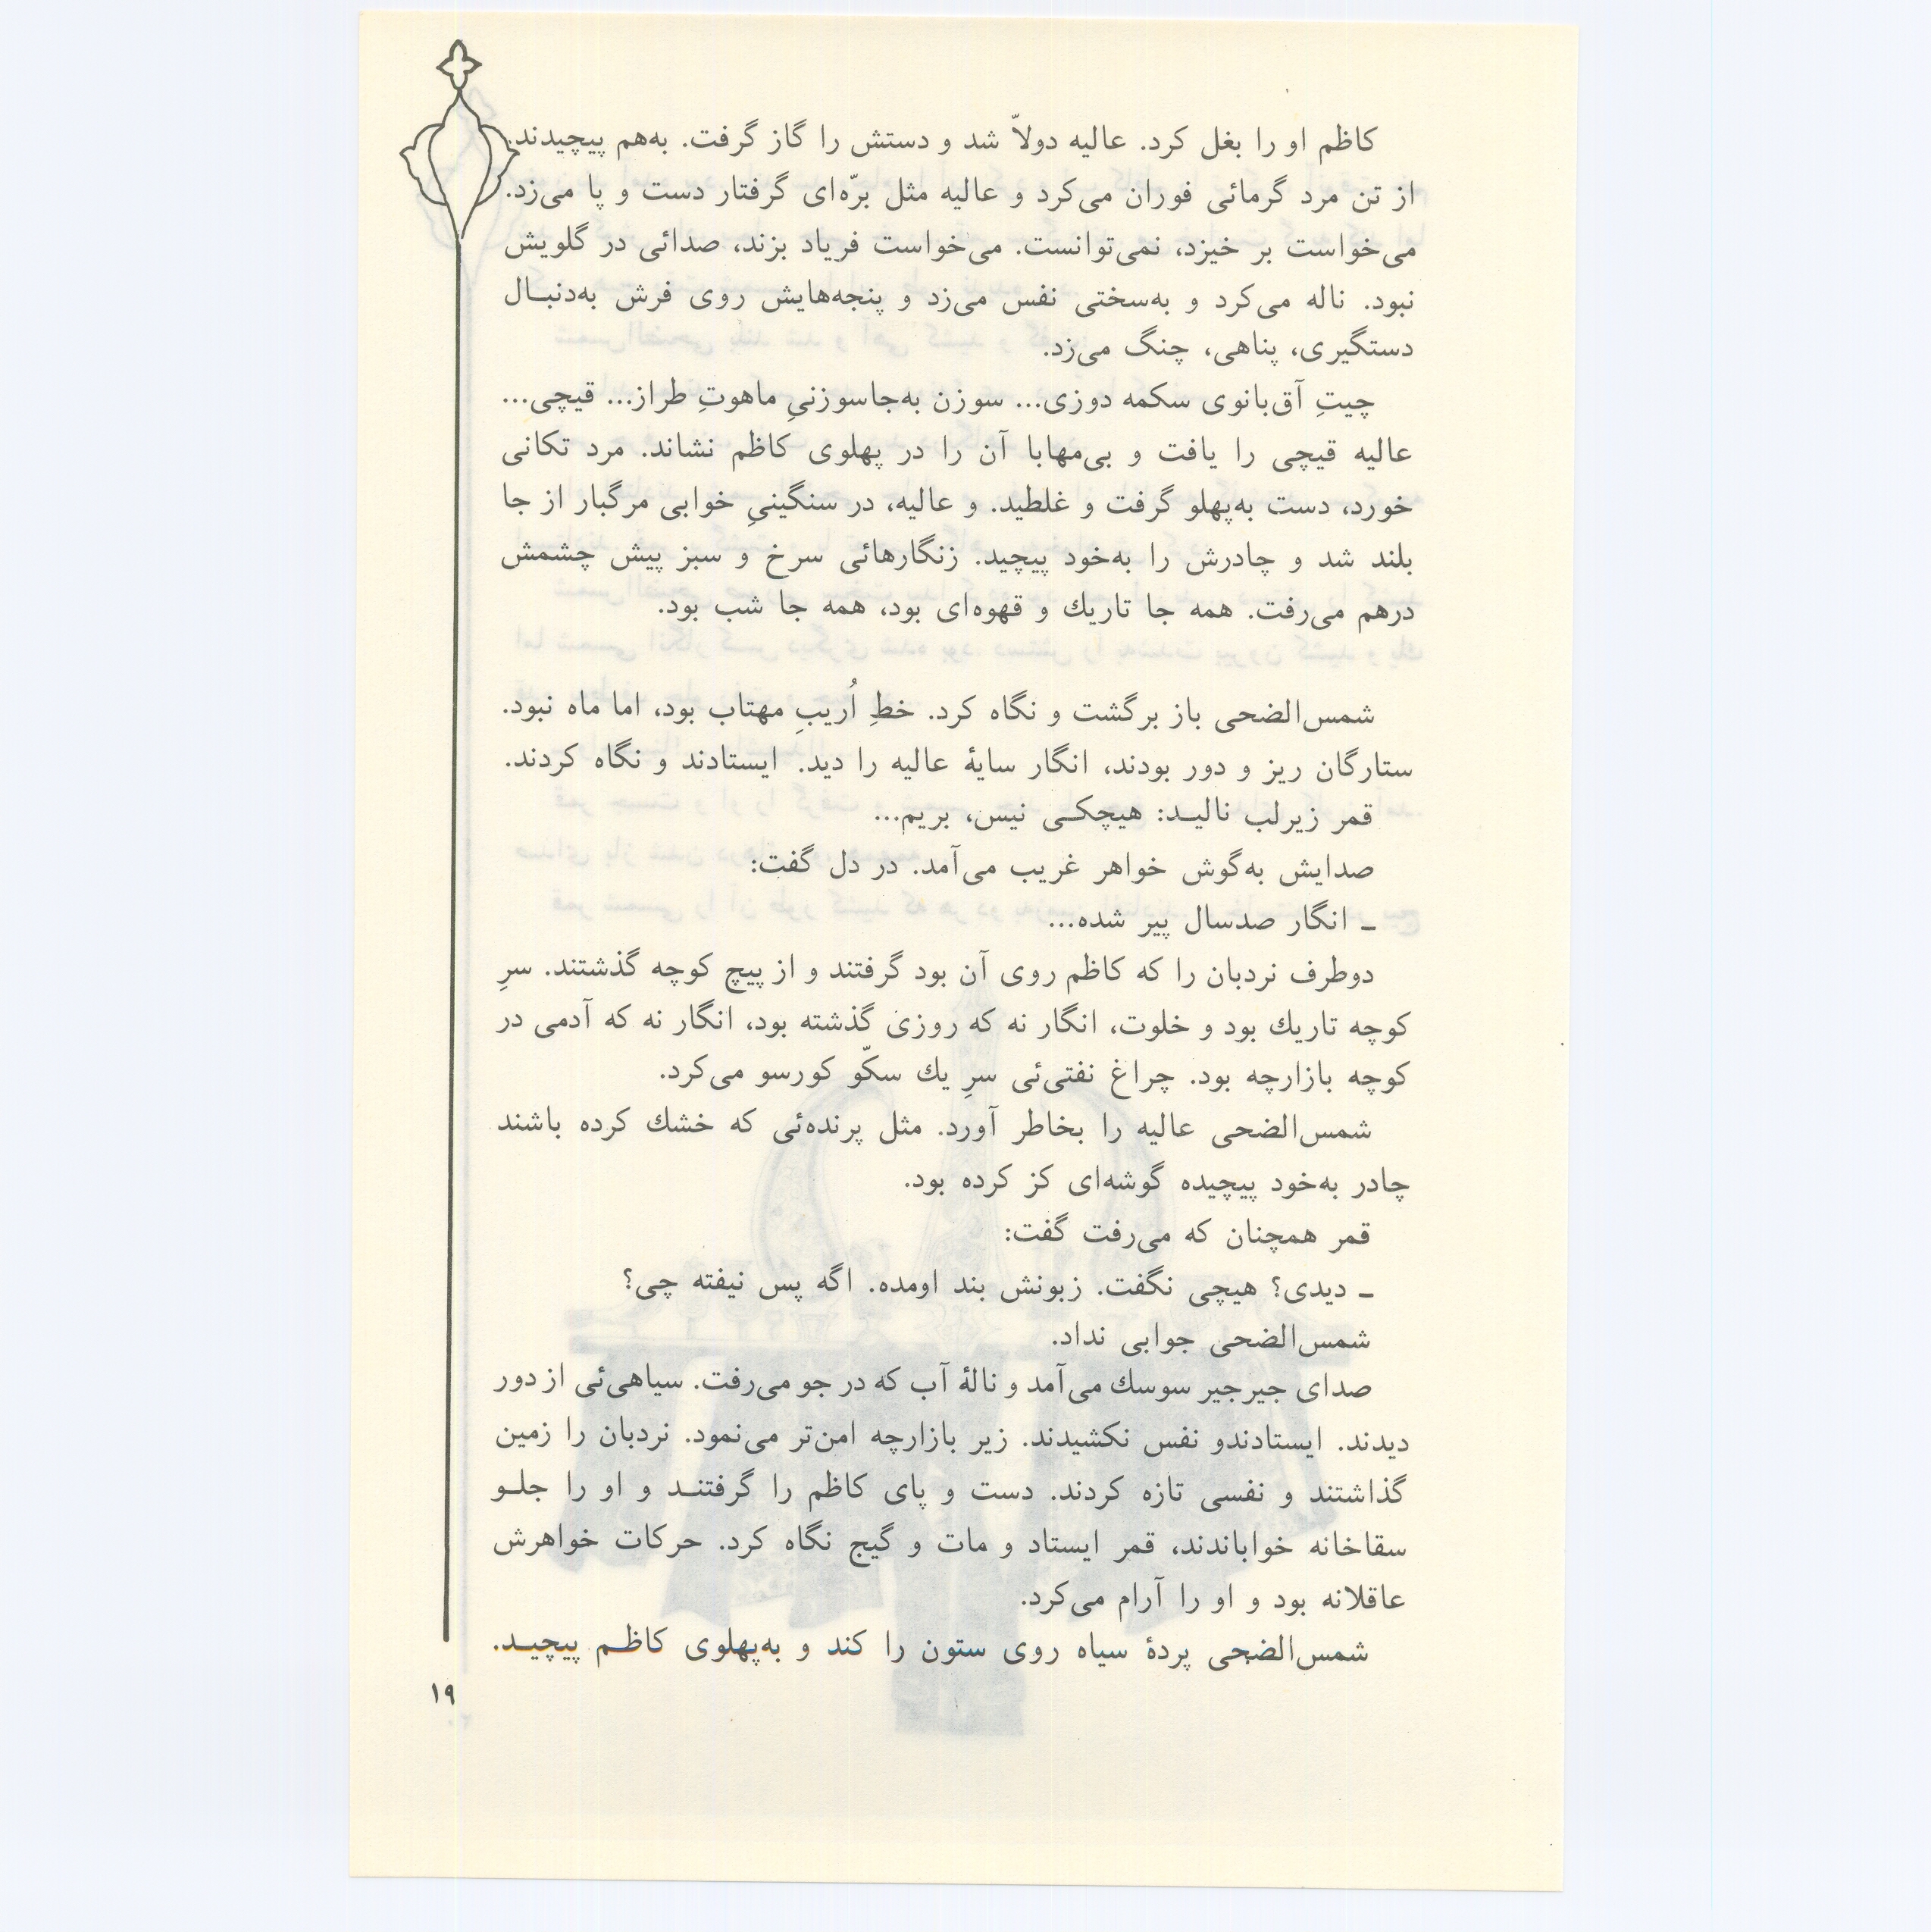 کاظم او را بغل کرد. عالیه دولاّ شد و دستش را گاز گرفت. به‌هم پیچیدند.
از تن مرد گرمائی فوران می‌کرد و عالیه مثل برّه‌ای گرفتار دست و پا می‌زد.
می‌خواست بر خیزد، نمی‌توانست. می‌خواست فریاد بزند، صدائی در گلویش
نبود. ناله می‌کرد و به‌سختی نفس می‌زد و پنجه‌هایش روی فرش به‌دنبـال
دستگیری، پناهی، چنگ می‌زد.
چیتِ آق‌بانوی سکمه دوزی... سوزن به‌جاسوزنیِ ماهوتِ طراز... قیچی...
عالیه قیچی را یافت و بی‌مهابا آن را در پهلوی کاظم نشاند. مرد تکانی
خورد، دست به‌پهلو گرفت و غلطید. و عالیه، در سنگینیِ خوابی مرگبار از جا
بلند شد و چادرش را به‌خود پیچید. زنگارهائی سرخ و سبز پیش چشمش
درهم می‌رفت. همه جا تاریك و قهوه‌ای بود، همه جا شب بود.
شمس‌الضحی باز برگشت و نگاه کرد. خطِ اُریبِ مهتاب بود، اما ماه نبود.
ستارگان ریز و دور بودند، انگار سایهٔ عالیه را دید. ایستادند و نگاه کردند.
قمر زیرلب نالیـد: هیچکـی نیس، بریم...
صدایش به‌گوش خواهر غریب می‌آمد. در دل گفت:
ـ انگار صدسال پیر شده...
دوطرف نردبان را که کاظم روی آن بود گرفتند و از پیچ کوچه گذشتند. سرِ
کوچه تاریك بود و خلوت، انگار نه که روزی گذشته بود، انگار نه که آدمی در
کوچه بازارچه بود. چراغ نفتی‌ئی سرِ یك سکّو کورسو می‌کرد.
شمس‌الضحی عالیه را بخاطر آورد. مثل پرنده‌ئی که خشك کرده باشند
چادر به‌خود پیچیده گوشه‌ای کز کرده بود.
قمر همچنان که می‌رفت گفت:
ـ دیدی؟ هیچی نگفت. زبونش بند اومده. اگه پس نیفته چی؟
شمس‌الضحی جوابی نداد.
صدای جیرجیر سوسك می‌آمد و نالهٔ آب که در جو می‌رفت. سیاهی‌ئی از دور
دیدند. ایستادندو نفس نکشیدند. زیر بازارچه امن‌تر می‌نمود. نردبان را زمین
گذاشتند و نفسی تازه کردند. دست و پای کاظم را گرفتنـد و او را جلـو
سقاخانه خواباندند، قمر ایستاد و مات و گیج نگاه کرد. حرکات خواهرش
عاقلانه بود و او را آرام می‌کرد.
شمس‌الضحی پردهٔ سیاه روی ستون را کند و به‌پهلوی کاظـم پیچیـد.
۱۹